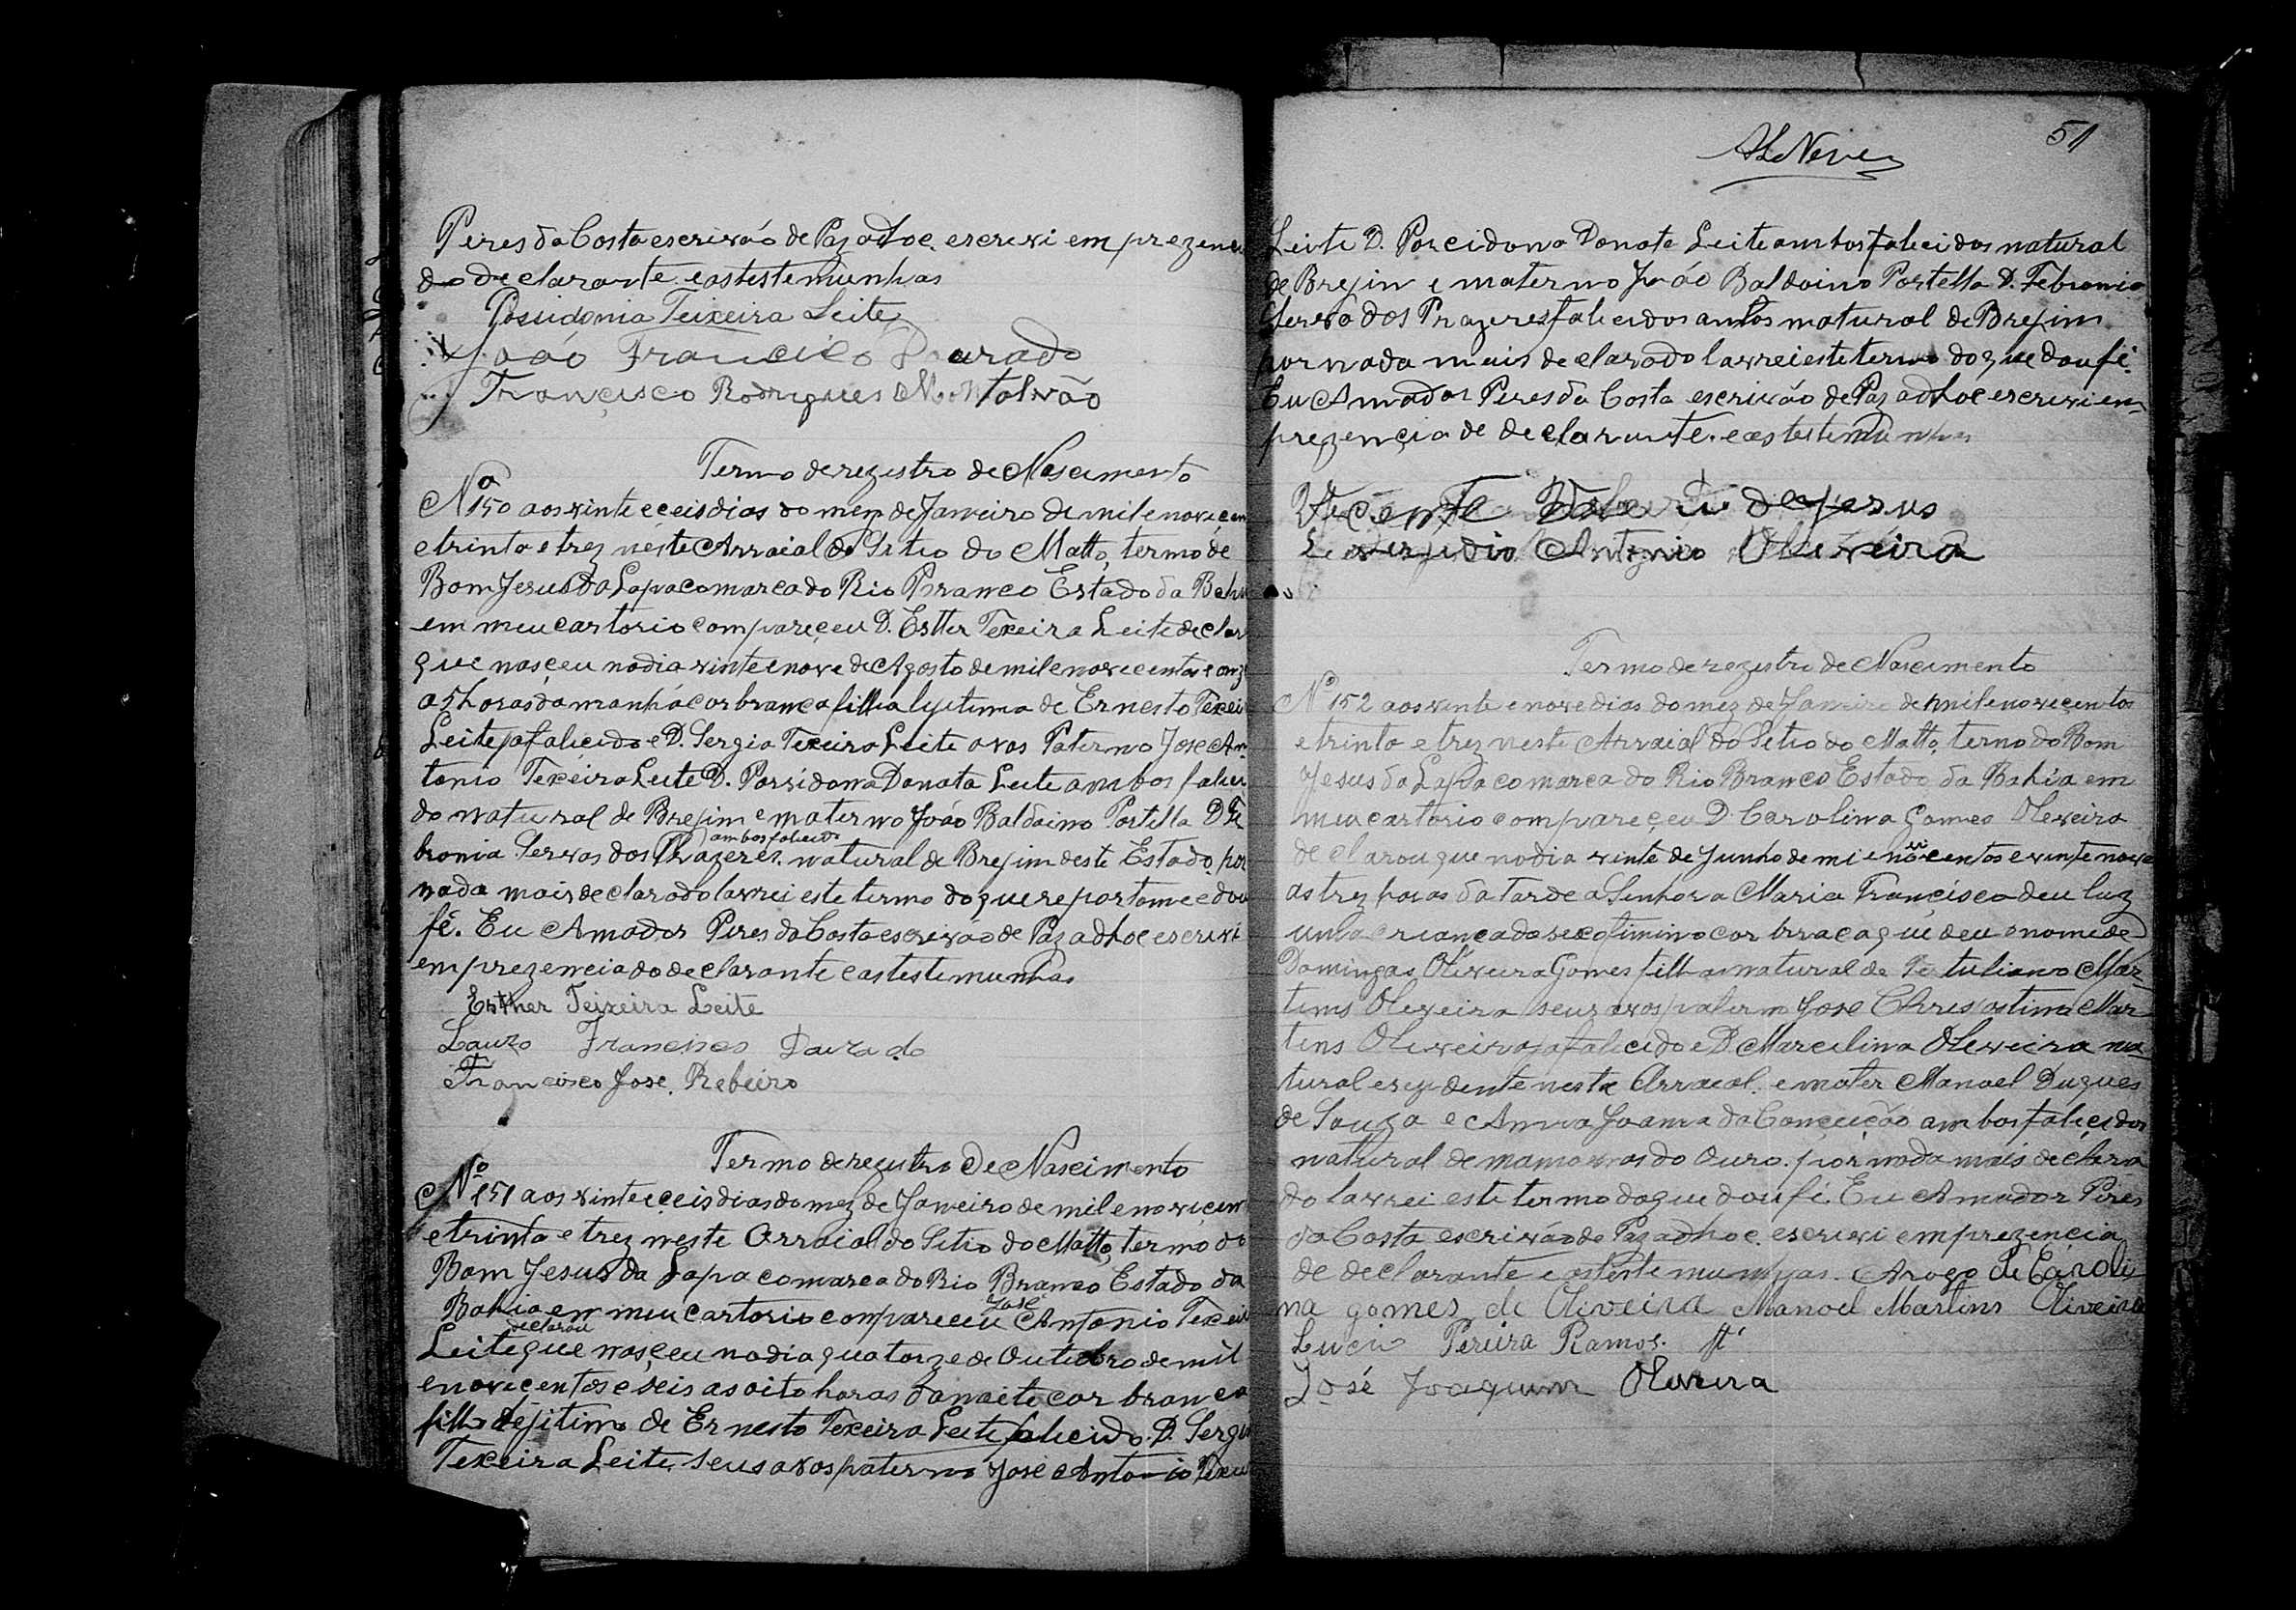 Peres da Costa escrivão de Paz adhoc. escrevi em prezenci
do declarante e as testemunhas
Possidonia Teixeira Leite
João Francisco Dourado
Francisco Rodrigues Montalvão
Termo de rezistro de Nascimento
Nº 150 aos vinte e ceis dias do mez de Janeiro de mil e nove cen
e trinta e trez neste Arraial do Sitio do Matto, termo de
Bom Jesus da Lapa comarca do Rio Branco Estado da Bahi
em meu cartorio compareçeu D. Estter Texeira Leite declar
que nasçeu no dia vinte e nove de Agosto de mil e nove centos e onz
as 5 horas da manhã cor branca filha lijitima de Ernesto Texei
Leite ja faliçido e D. Sergia Texeira Leite avos Paterno Jose An
tonio Texeira Leite D. Possidona Donata Leite ambos falici
do natural de Brejim e materno João Baldoino Portella D. Fe
ambos falicido
bronia Servas dos Prazeres. natural de Brejim deste Estado. por
nada mais declarado lavrei este termo do que reporto me e dou
fé. Eu Amador Peres da Costa escrivao de Paz adhoc escrevi
em prezencia do declarante e as testemunhas
Esther Teixeira Leite
Lauro Francisco Dourado
Francisco Jose Rebeiro
Termo de rezistro de Nascimento
Nº 151 aos vinte e ceis dias do mez de Janeiro de mil e noviçen
e trinta e trez neste Arraial do Sitio do Matto, termo do
Bom Jesus da Lapa comarca do Rio Branco Estado da
José
Bahia em meu cartorio compareceu Antonio Texeir
declarou
Leite que nasçeu no dia quatorze de Outubro de mil
e noviçentos e seis as oito horas da noite cor branca
filho lejitimo de Ernesto Texeira Leite falicido. D. Sergi
Texeira Leite. seus avos paterno José Antonio Texei
51
ALNeves
Leite D. Porcidona Donate Leite ambos falicidos natural
de Brejin e materno João Baldoino Portella D. Febronia
Serva dos Prazeres falicidos ambos natural de Brejim
por nada mais declarado lavrei este termo do que dou fé.
Eu Amador Peres da Costa escrivão de Paz adhoc escrevi em
prezençia de declarante. e as testemunhas
Vicente de Jesus
Antonio Oliveira
Termo de rezistro de Nascimento
Nº 152 aos vinte e nove dias do mez de Janeiro de mil e noveçentos
e trinta e trez neste Arraial do Sitio do Matto, termo do Bom
Jesus da Lapa comarca do Rio Branco Estado da Bahia em
meu cartorio compareçeu D. Carolina Gomes Oliveira
declarou que no dia vinte de Junho de mil e novicentos e vinte nove
as trez horas da tarde a Senhora Maria Françisca deu luz
uma criança do sexo fiminino cor braca que deu o nome de
Domingas Oliveira Gomes filha natural de Tertuliano Mar
tins Oliveira seus avos paterno José Chrisostimo Mar
tins Oliveira ja falicido e D. Marcelina Oliveira na
tural e rezidente neste Arraial. e mater Manoel Duques
de Souza e Anna Joanna da Conceição ambos faliçidos
natural de mamonas do Ouro. por nada mais declara
do lavrei este termo do que dou fé. Eu Amador Peres
da Costa escrivão de Paz adhoc. escrevi em prezençia
de declarante e as testemunhas. Arogo de Caroli
na gomes de Oliveira Manoel Martins Oliveira
Pereira Ramos
José Joaquim Oliveira